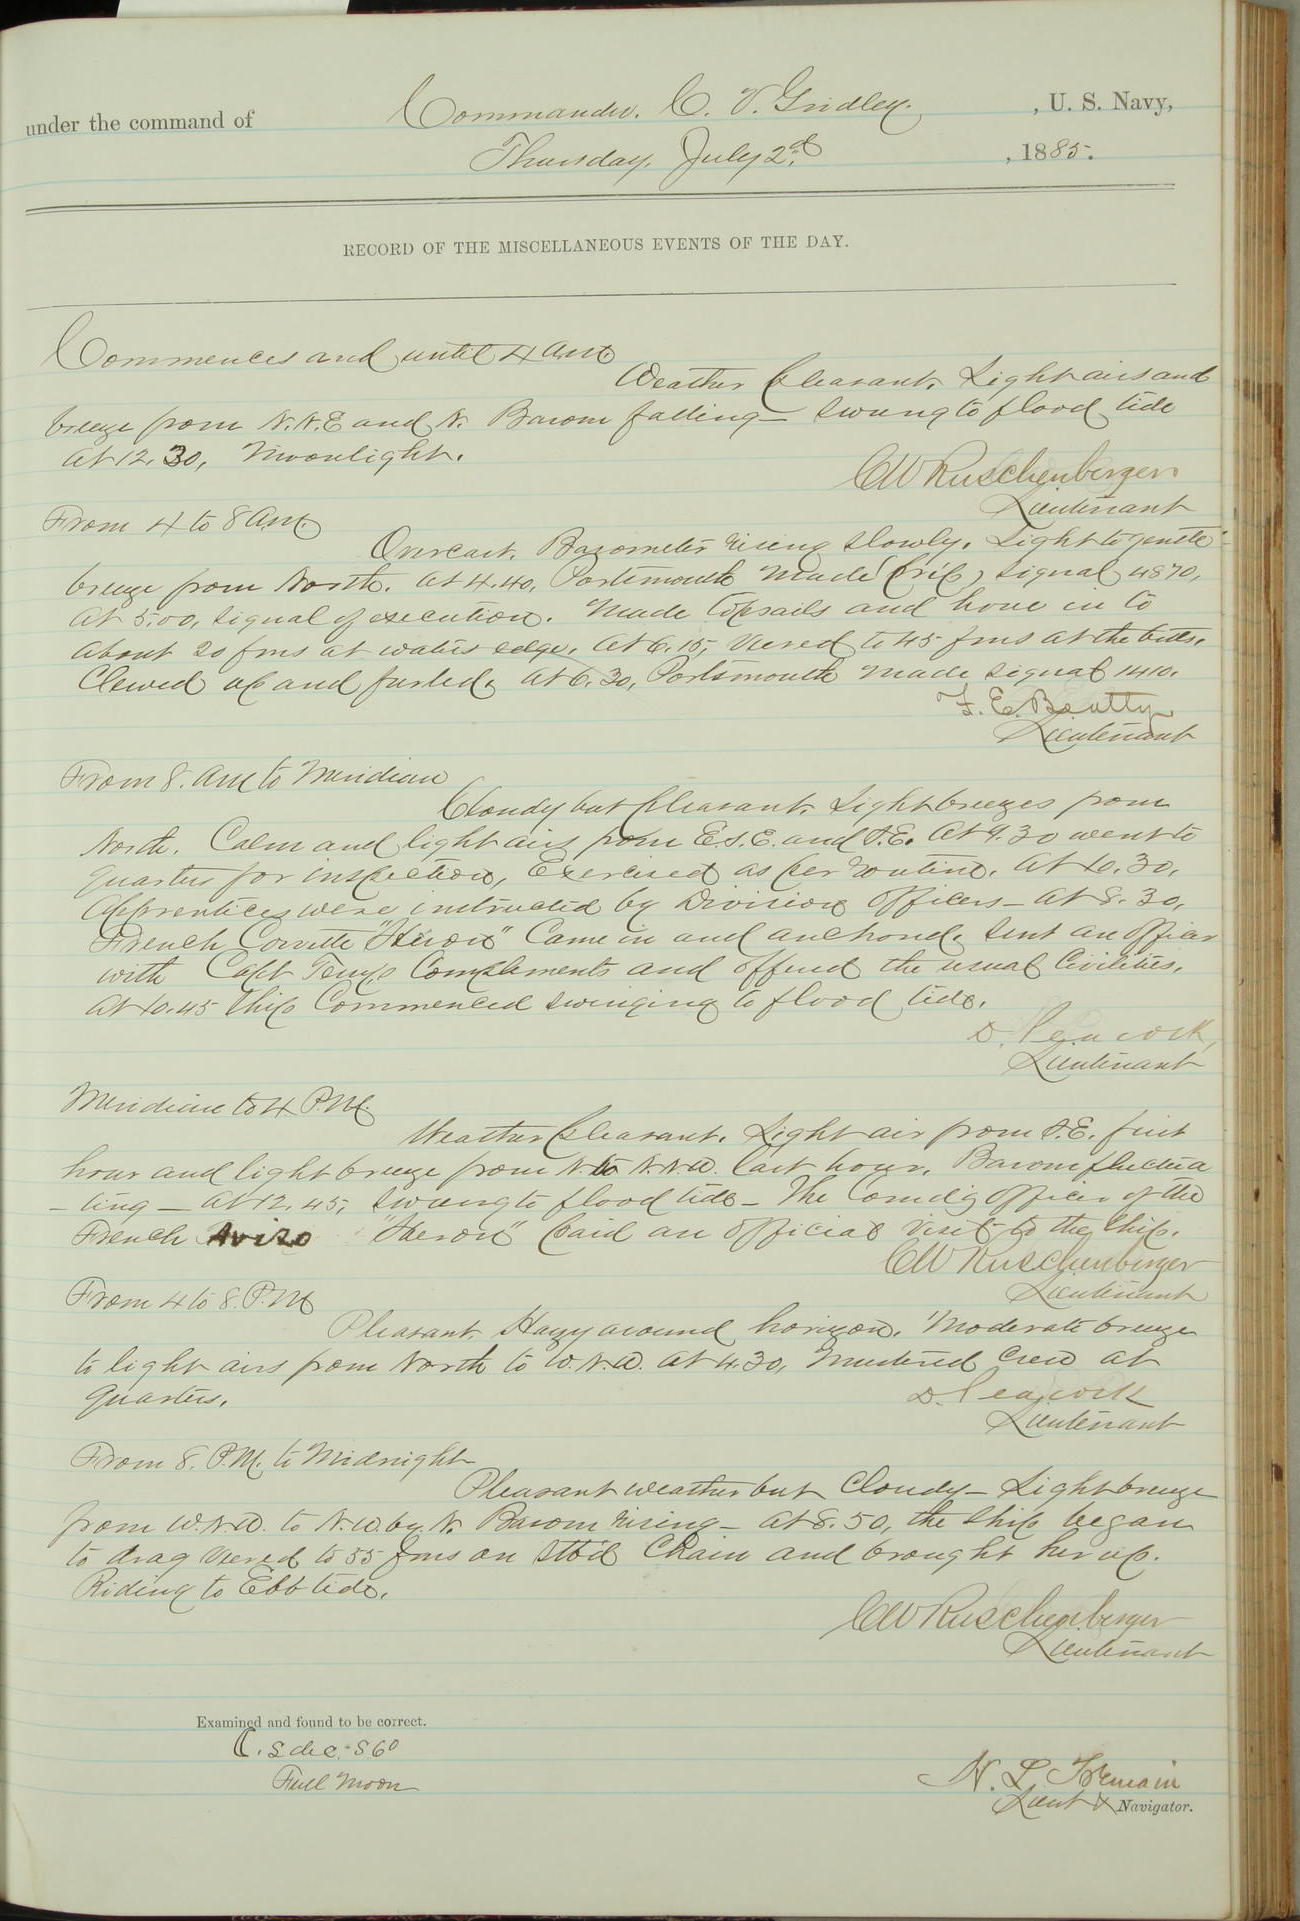 under the command of Commander. C. V. Gridley. , U. S. Navy,
Thursday, July 2d. , 1885.
RECORD OF THE MISCELLANEOUS EVENTS OF THE DAY.
Commences and until 4 A.M.
Weather pleasant. Light airs and
breeze from N.N.E and N. Barom falling – Swung to flood tide
at 12.30, Moonlight.
CW Ruschenberger
Lieutenant
From 4 to 8 A.M.
Overcast. Barometer rising slowly. Light to gentle
breeze from North. At 4.40, Portsmouth made (rip) signal 4870,
at 5.00, signal of execution. Made topsails and hove in to
about 20 fms at waters edge. At 6.15, veered to 45 fms at the bitts.
Clewed up and furled. At 6.30, Portsmouth made signal 1410.
F. E. Beatty
Lieutenant
From 8. AM to Meridian
Cloudy but pleasant. Light breezes from
North. Calm and light airs from E.S.E. and S.E. At 9.30 went to
quarters for inspection, Exercised as per routine. At 10.30,
Apprentices were instructed by Division Officers – At 8.30,
French Corvette "Heron" Came in and anchored. Sent an officer
with Capt Compliments and offered the usual Civilities.
At 10.45 Ship Commenced swinging to flood tide.
D. Peacock,
Lieutenant
Meridian to 4 P.M.
Weather pleasant. Light air from S.E. first
hour and light breeze from N. to N.N.W. last hour. Barom fluctua
– ting – At 12.45, swung to flood tide – The Comd'g Officer of the
French Aviso "Heron" paid an official visit to the Ship.
CW Ruschenberger
Lieutenant
From 4 to 8. P.M
Pleasant. Hazy around horizon. Moderate breeze
to light airs from North to W.N.W. At 4.30, mustered crew at
quarters.
D. Peacock
Lieutenant
From 8. P.M. to Midnight
Pleasant weather but Cloudy – Light breeze
from W.N.W. to N.W. by N. Barom rising – At 8.50, the Ship began
to drag veered to 55 fms on Stb'd Chain and brought her up.
Riding to Ebb tide.
CW Ruschenberger
Lieutenant
Examined and found to be correct.
Full Moon
H. L. Tremain
Lieut & Navigator.